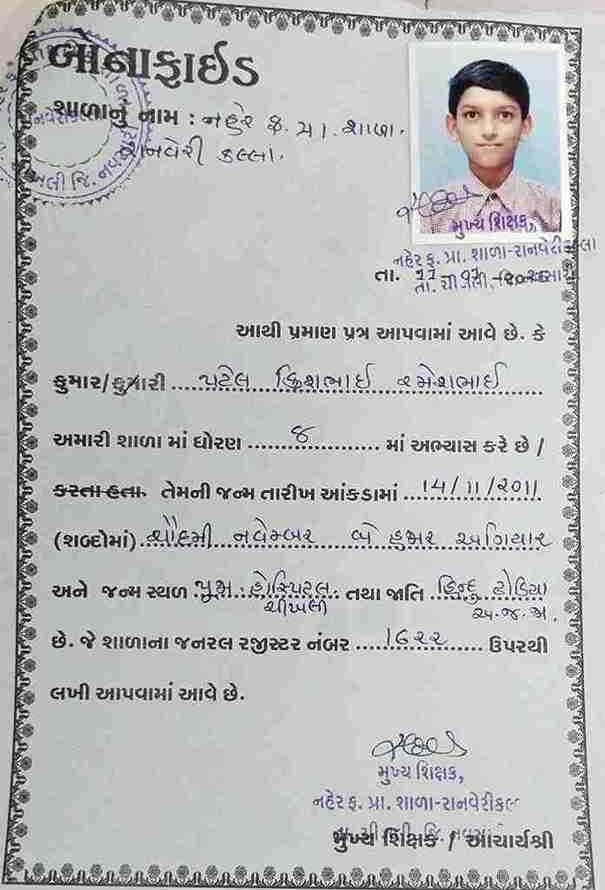 બોનાફાઈડ
શાળાનું નામ : નહેર ફ. પ્રા. શાળા.
રાનવેરી કલ્લા.
મુખ્ય શિક્ષક,
નહેર ફ. પ્રા. શાળા-રાનવેરીકલ્લા
તા.
આથી પ્રમાણ પત્ર આપવામાં આવે છે. કે
કુમાર/કુમારી ....પટેલ ક્રિશભાઈ રમેશભાઈ....
અમારી શાળા માં ધોરણ ........૪........ માં અભ્યાસ કરે છે /
કરતા હતા. તેમની જન્મ તારીખ આંકડામાં ..14/11/2011..
(શબ્દોમાં) ..ચૌદમી નવેમ્બર બે હજાર અગિયાર
અને જન્મ સ્થળ ..હોસ્પિટલ.. તથા જાતિ ..હિન્દુ ઢોડિયા
ચીખલી અ.જ.જા.
છે. જે શાળાના જનરલ રજીસ્ટર નંબર .....1622..... ઉપરથી
લખી આપવામાં આવે છે.
મુખ્ય શિક્ષક,
નહેર ફ. પ્રા. શાળા-રાનવેરીકલ
મુખ્ય શિક્ષક / આચાર્યશ્રી